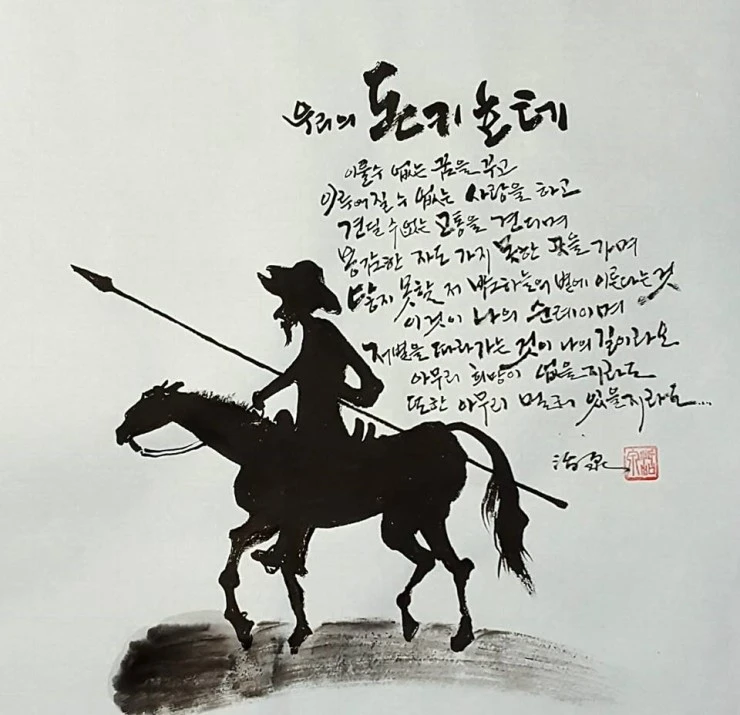 우리의 돈키호테
이룰 수 없는 꿈을 꾸고
이루어질 수 없는 사랑을 하고
견딜 수 없는 고통을 견디며
용감한 자도 가지 못한 곳을 가며
닿지 못할 저 밤하늘의 별에 이른다는 것
이것이 나의 순례이며
저 별을 따라가는 것이 나의 길이라오
아무리 희망이 없을지라도
또한 아무리 멀리 있을지라도...